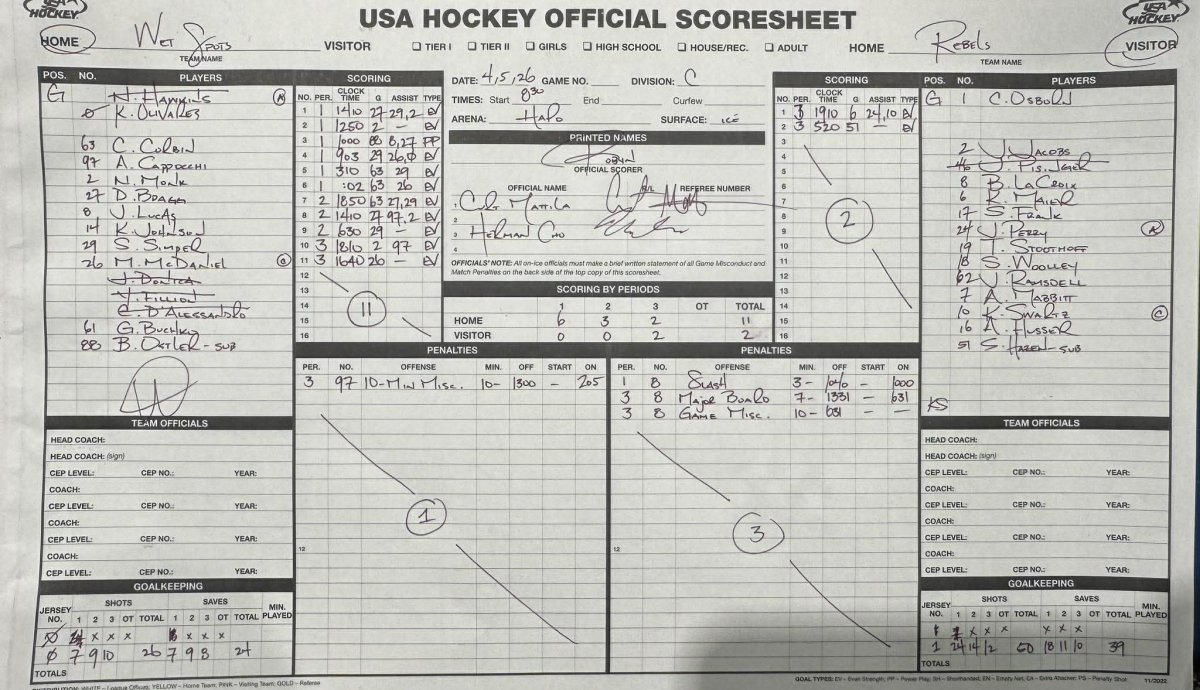 USA HOCKEY
USA HOCKEY OFFICIAL SCORESHEET
USA HOCKEY
HOME Wet Spots VISITOR ☐ TIER I ☐ TIER II ☐ GIRLS ☐ HIGH SCHOOL ☐ HOUSE/REC. ☐ ADULT HOME Rebels VISITOR
TEAM NAME TEAM NAME
POS. NO. PLAYERS
G N. Hawkins A
0 K. Olivares
63 C. Corbin
97 A. Cappocchi
2 N. Monk
27 D. Bragg
8 J. Lucas
14 K. Johnson
29 S. Simper
26 M. McDaniel C
J. Dontca
J. Fillion
C. D'Alessandro
61 G. Buchko
88 B. Ostler - sub
SCORING
NO. PER. CLOCK TIME G ASSIST TYPE
1 1 1410 27 29,2 EV
2 1 1250 2 — EV
3 1 1000 88 8,27 PP
4 1 903 29 26,0 EV
5 1 310 63 29 EV
6 1 :02 63 26 EV
7 2 1850 63 27,29 EV
8 2 1410 27 97,2 EV
9 2 630 29 — EV
10 3 1810 2 97 EV
11 3 1640 26 — EV
12
13
14
15
16
11
DATE: 4,5,26 GAME NO. DIVISION: C
TIMES: Start 830 End Curfew
ARENA: Halo SURFACE: ice
PRINTED NAMES
OFFICIAL SCORER
OFFICIAL NAME REFEREE NUMBER
1 Curt Mattila
2
3 Herman Cho
4
OFFICIALS' NOTE: All on-ice officials must make a brief written statement of all Game Misconduct and
Match Penalties on the back side of the top copy of this scoresheet.
SCORING BY PERIODS
1 2 3 OT TOTAL
HOME 6 3 2 11
VISITOR 0 0 2 2
SCORING
NO. PER. CLOCK TIME G ASSIST TYPE
1 3 1910 6 24,10 EV
2 3 520 51 — EV
3
4
5
6
7
8
9
10
11
12
13
14
15
16
2
POS. NO. PLAYERS
G 1 C. Osborn
2 J. Jacobs
46 J. Pisinger
8 B. LaCroix
6 R. Maier
17 S. Frank
24 J. Perry A
19 T. Stoothoff
18 S. Woolley
62 J. Ramsdell
7 A. Mabbitt
10 K. Swartz C
16 A. Husser
51 S. Hazen - sub
KS
PENALTIES
PER. NO. OFFENSE MIN. OFF START ON
3 97 10-Min Misc. 10- 1300 — 205
12
1
PENALTIES
PER. NO. OFFENSE MIN. OFF START ON
1 8 Slash 3- 1040 — 1000
3 8 Major Board 7- 1331 — 631
3 8 Game Misc. 10- 631 — —
12
3
TEAM OFFICIALS
HEAD COACH:
HEAD COACH: (sign)
CEP LEVEL: CEP NO.: YEAR:
COACH:
CEP LEVEL: CEP NO.: YEAR:
COACH:
CEP LEVEL: CEP NO.: YEAR:
COACH:
CEP LEVEL: CEP NO.: YEAR:
TEAM OFFICIALS
HEAD COACH:
HEAD COACH: (sign)
CEP LEVEL: CEP NO.: YEAR:
COACH:
CEP LEVEL: CEP NO.: YEAR:
COACH:
CEP LEVEL: CEP NO.: YEAR:
COACH:
CEP LEVEL: CEP NO.: YEAR:
GOALKEEPING
JERSEY NO. SHOTS 1 2 3 OT TOTAL SAVES 1 2 3 OT TOTAL MIN. PLAYED
x x x x x x
0 7 9 10 26 7 9 8 24
TOTALS
GOALKEEPING
JERSEY NO. SHOTS 1 2 3 OT TOTAL SAVES 1 2 3 OT TOTAL MIN. PLAYED
x x x x x
1 24 14 12 50 18 11 10 39
TOTALS
DISTRIBUTION: WHITE – League Officials; YELLOW – Home Team; PINK – Visiting Team; GOLD – Referee
GOAL TYPES: EV - Even Strength; PP - Power Play; SH - Shorthanded; EN - Empty Net; EA - Extra Attacker; PS - Penalty Shot
11/2022